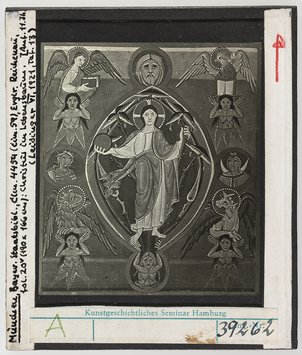 München, Bayer. Staatsbibl., Clm. 4454 (Cim. 59), Evglr. Reichenau,
fol. 20v (190 x 166 cm): Christus im Lebensbaum. Anf. 11. Jh
(Leidinger VI. 1921, Taf. 13)
Kunstgeschichtliches Seminar Hamburg
A
39262